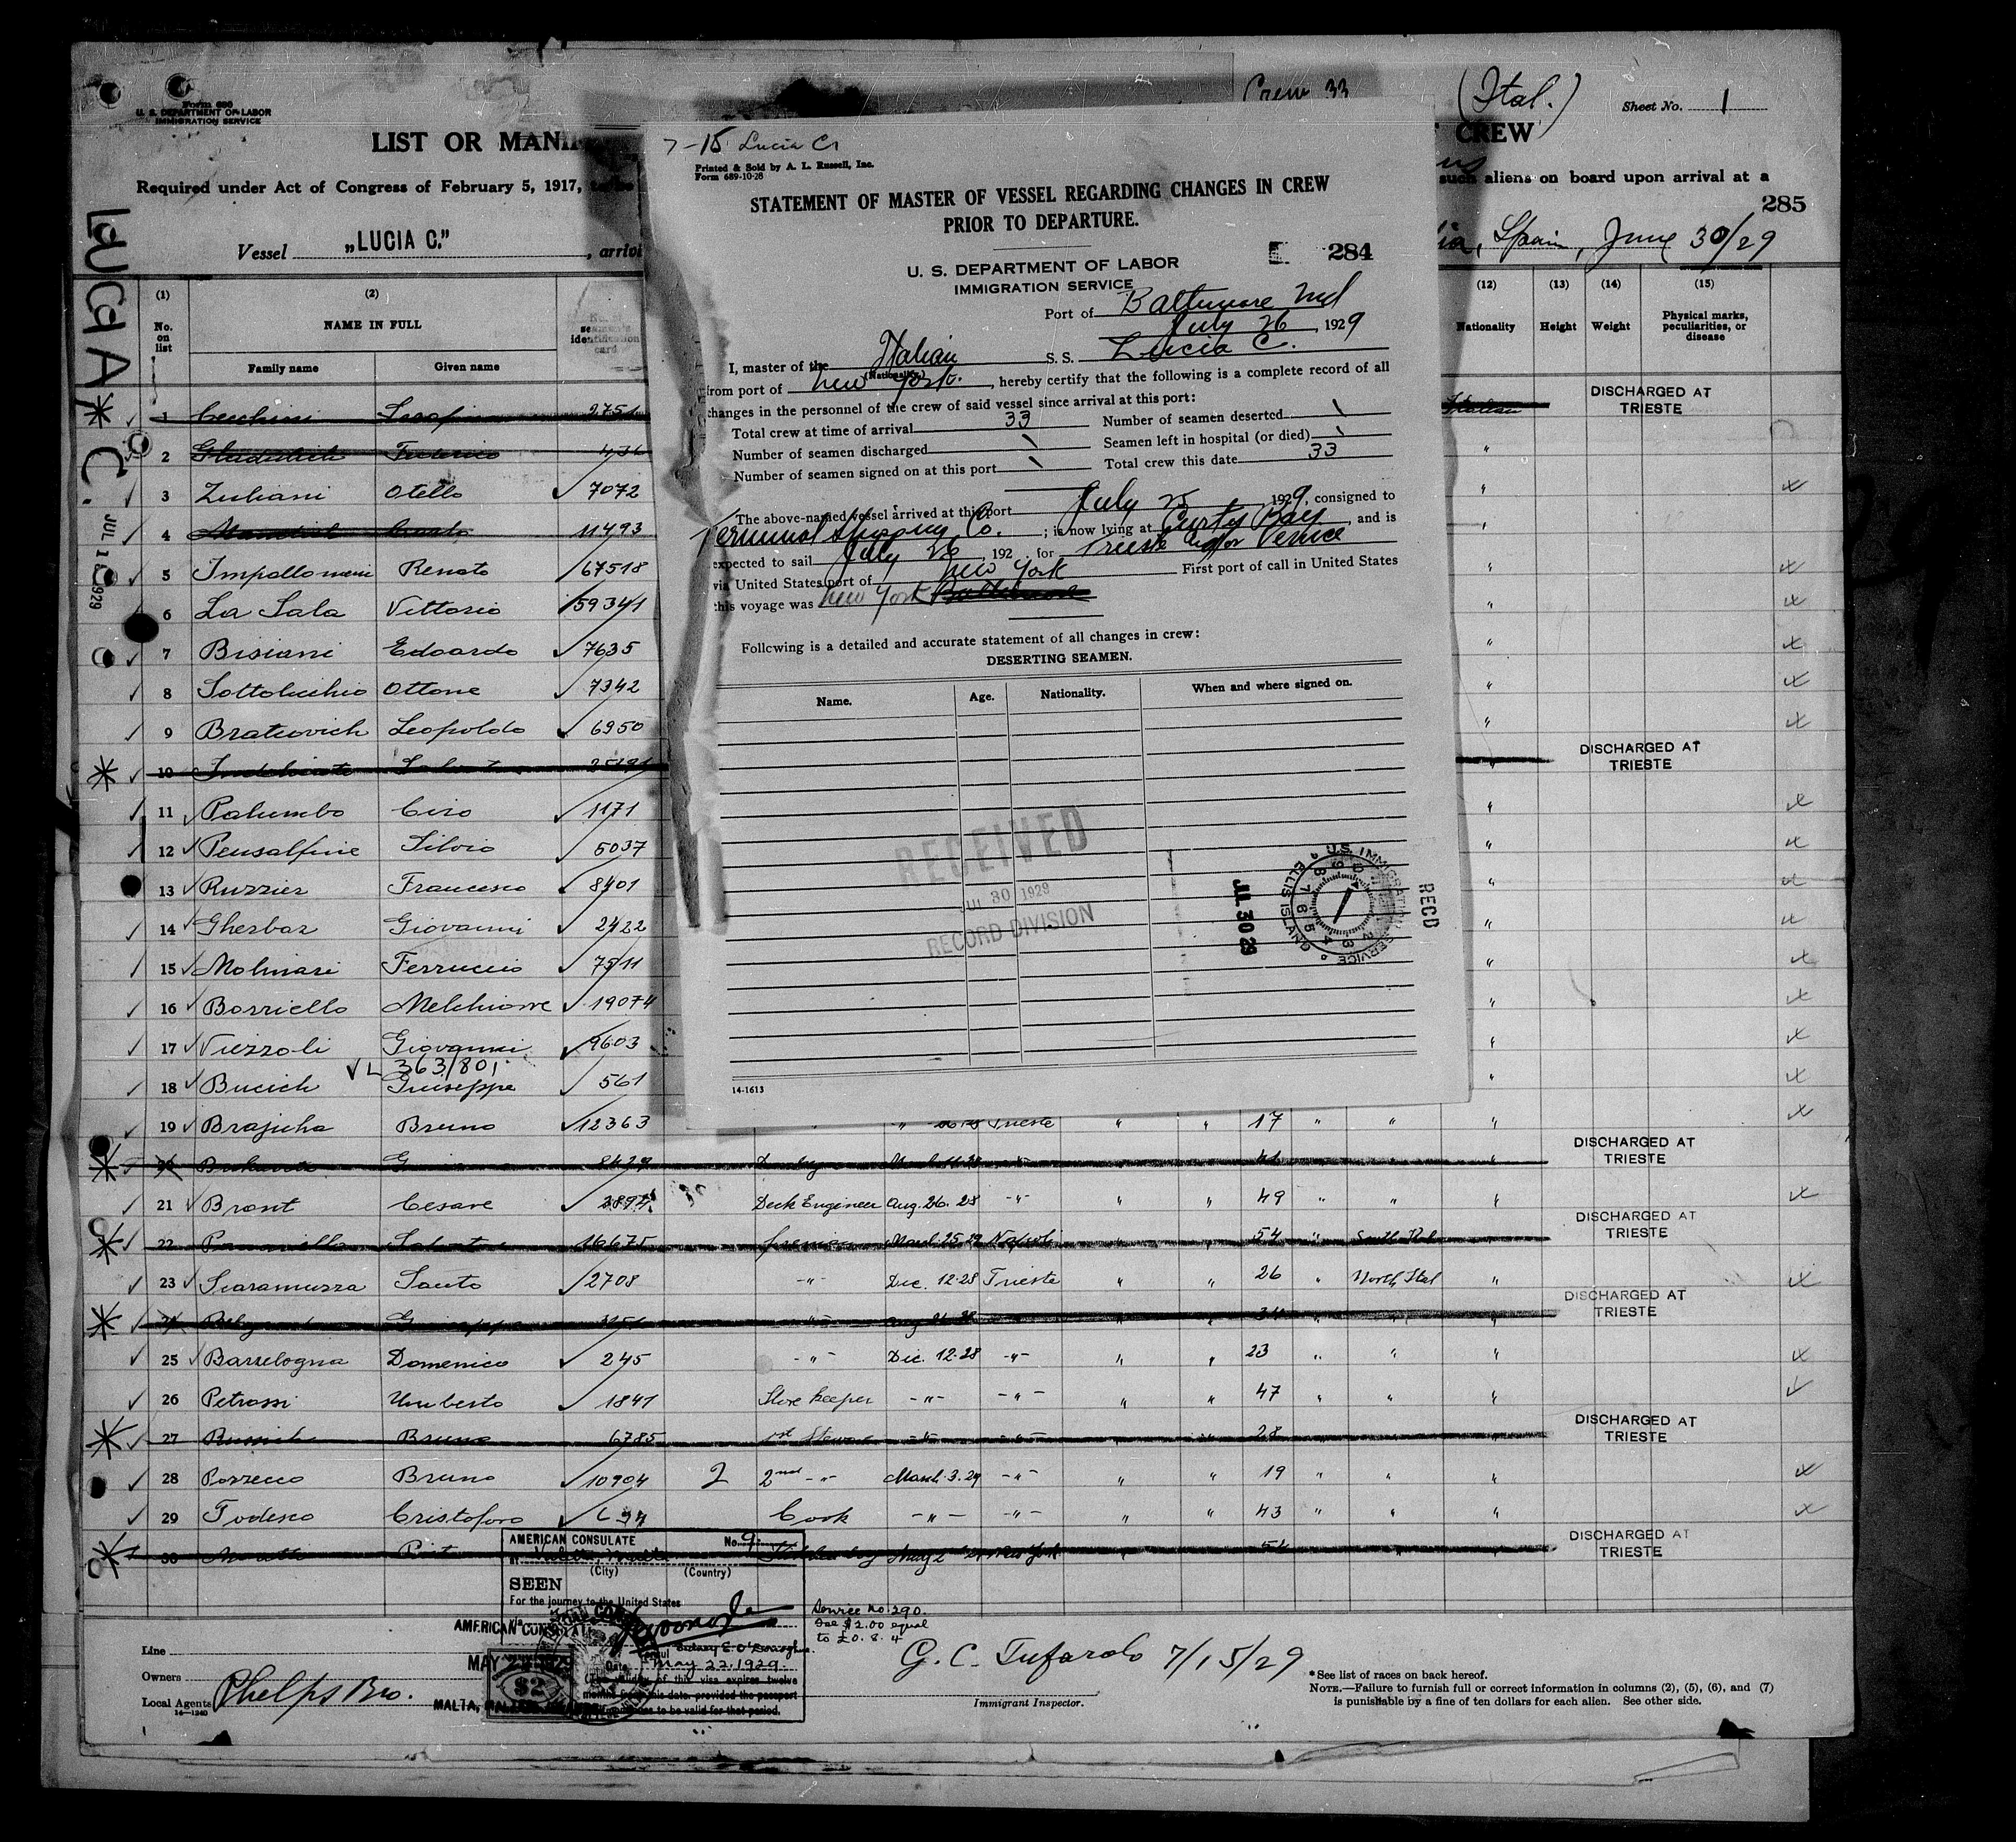 Form 680
U. S. DEPARTMENT OF LABOR
IMMIGRATION SERVICE
Crew 33
(Ital.)
Sheet No. 1
LIST OR MANI
CREW
Required under Act of Congress of February 5, 1917,
such aliens on board upon arrival at a
285
Vessel „LUCIA C.", arrivi
Spain, June 30/29
LUCIA C.
JUL 1 1929
7-15 Lucia C
Printed & Sold by A. L. Russell, Inc.
Form 689-10-28
STATEMENT OF MASTER OF VESSEL REGARDING CHANGES IN CREW
PRIOR TO DEPARTURE.
284
U. S. DEPARTMENT OF LABOR
IMMIGRATION SERVICE
Port of Baltimore Md
July 26, 1929
I, master of the Italian S. S. Lucia C.
(Nationality)
from port of New York, hereby certify that the following is a complete record of all
changes in the personnel of the crew of said vessel since arrival at this port:
Total crew at time of arrival 33 Number of seamen deserted \
Number of seamen discharged \ Seamen left in hospital (or died) \
Number of seamen signed on at this port \ Total crew this date 33
The above-named vessel arrived at this port July 25 1929, consigned to
Terminal Shipping Co. ; is now lying at Curtis Bay, and is
expected to sail July 26, 192 for Trieste and/or Venice
via United States port of New York First port of call in United States
this voyage was New York Baltimore
Following is a detailed and accurate statement of all changes in crew:
DESERTING SEAMEN.
Name. Age. Nationality. When and where signed on.
RECEIVED
JUL 30 1929
RECORD DIVISION
JUL 30 29
U.S. IMMIGRATION SERVICE
ELLIS ISLAND
RECD
14-1613
(1) (2) (12) (13) (14) (15)
No. on list
NAME IN FULL
Family name Given name
No. of seamen's identification card
Nationality Height Weight Physical marks, peculiarities, or disease
1 Cecchini Serafino 2751 Italian DISCHARGED AT TRIESTE
2 Federico 436 "
3 Zuliani Otello 7072 "
4 11493 "
5 Impallomeni Renato 67518 "
6 La Sala Vittorio 59341 "
7 Bisiani Edoardo 7635 "
8 Sottolicchio Ottone 7342 "
9 Bratcovich Leopoldo 6950 "
10 DISCHARGED AT TRIESTE
11 Palumbo Ciro 1171 "
12 Pensalfine Silvio 5037 "
13 Ruzzier Francesco 8401 "
14 Gherbaz Giovanni 2422 "
15 Molinari Ferruccio 7511 "
16 Borriello Melchiorre 19074 "
17 Viezzoli Giovanni 9603 "
VL 363/801
18 Bucich Giuseppe 561 "
19 Brajuha Bruno 12363 Trieste " " 17 " " "
20 8429 41 " DISCHARGED AT TRIESTE
21 Bront Cesare Deck Engineer Aug. 26. 28 -"- " " 49 " " "
22 Salvatore 16675 fireman March 25 29 Napoli " " 54 " South Ital " DISCHARGED AT TRIESTE
23 Scaramuzza Santo 2708 -"- Dic. 12-28 Trieste " " 26 " North Ital "
24 Giuseppe -"- 34 " DISCHARGED AT TRIESTE
25 Barzelogna Domenico 245 -"- Dic. 12-28 -"- " " 23 " " "
26 Petrossi Umberto 1841 Store keeper -"- -"- " " 47 " " "
27 Bruno 6785 1st Steward -"- -"- " " 28 " DISCHARGED AT TRIESTE
28 Porzecco Bruno 10904 2 2nd -"- March 3. 29 -"- " " 19 " " "
29 Todesco Cristoforo Cook -"- -"- " " 43 " " "
30 New York 54 " DISCHARGED AT TRIESTE
AMERICAN CONSULATE No. 9
(City) (Country)
SEEN
For the journey to the United States
via
AMERICAN CONSULATE
Consul
Date May 22. 1929
(The validity of this visa expires twelve
months from this date, provided the passport
continues to be valid for that period.
MAY 22 1929
$2
MALTA,
Service No. 290.
Fee $2.00 equal
to £0. 8. 4
Line
Owners
Local Agents Phelps Bro.
14-1240
G. C. Tufarolo 7/15/29
Immigrant Inspector.
*See list of races on back hereof.
NOTE.—Failure to furnish full or correct information in columns (2), (5), (6), and (7)
is punishable by a fine of ten dollars for each alien. See other side.